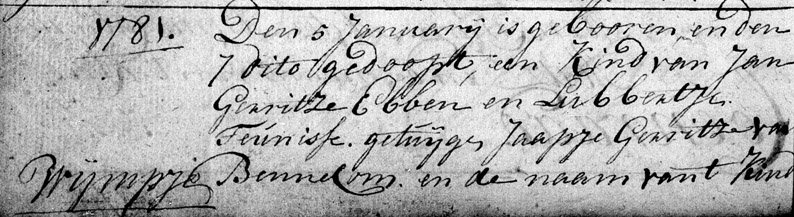 1781. Den 5 January is gebooren, en den
7 dito gedoopt, een Kind van Jan
Gerritze Ebben en Lubbertje
Teunisse. getuyge, Jaapje Gerritze van
Wympje Bennekom. en de naam vant Kind